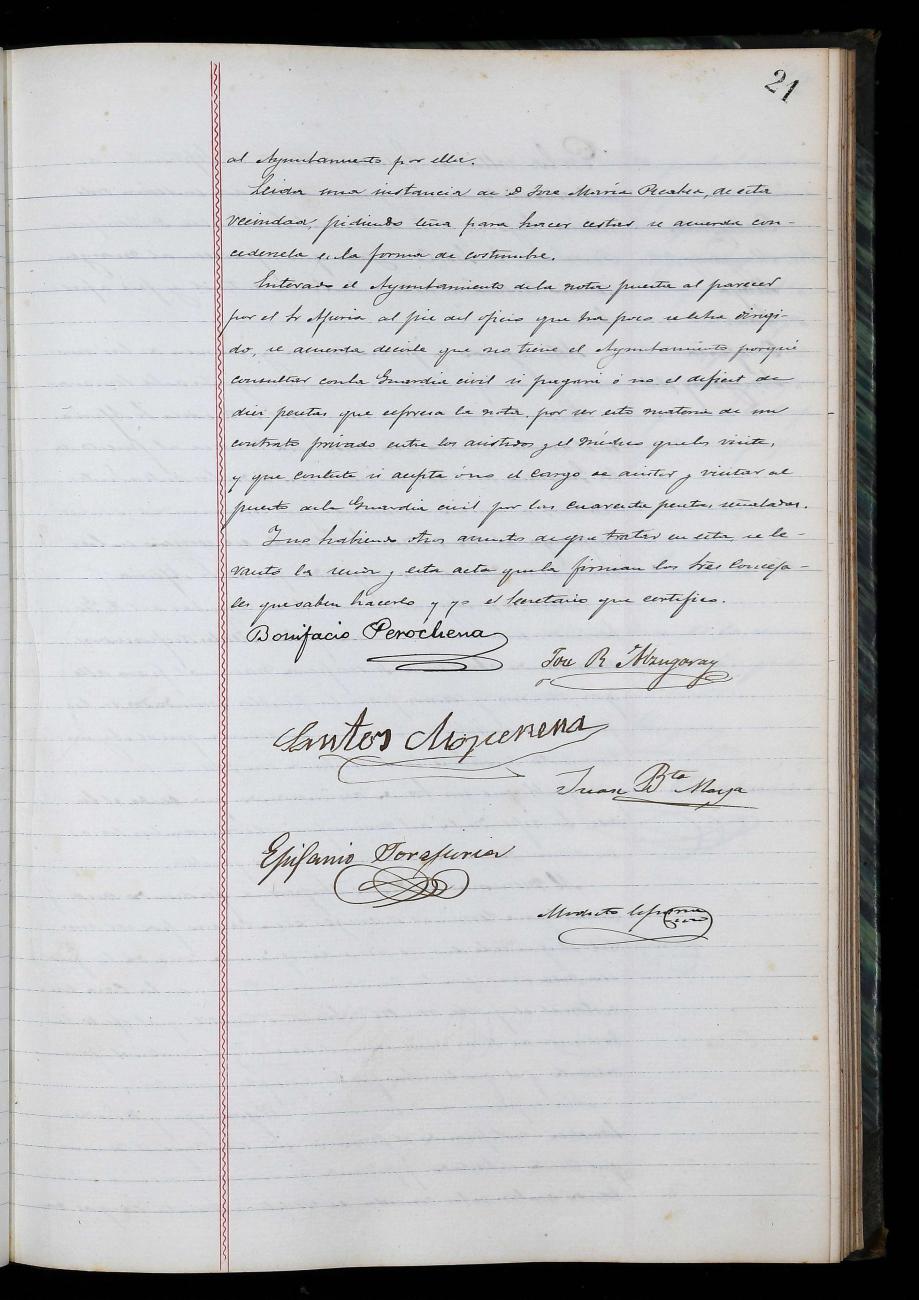 21
al Ayuntamiento por ella.
Leida una instancia de D José María Recalea, de esta
vecindad, pidiendo leña para hacer cestas, se acuerda con-
cedersela en la forma de costumbre.
Enterado el Ayuntamiento dela nota puesta al parecer
por el Sr Muria al pie del oficio que ha poco se leha dirigi-
do, se acuerda decirle que no tiene el Ayuntamiento porqué
consultar conla Guardia civil si pagará ó no el deficit de
diez pesetas que espresa la nota, por ser esto materia de un
contrato privado entre los asistidos y el médico queles visite,
y que conteste si acepta ó no el cargo de asistir y visitar al
puesto dela Guardia civil por las cuarenta pesetas señaladas.
Y no habiendo otros asuntos de que tratar en esta, se le-
vantó la sesión y esta acta quela firman los tres Conceja-
les que saben hacerlo y yo el Secretario que certifico.
Bonifacio Perochena
Jose R Alzugaray
Santos
Juan Bta Maya
Epifanio
Modesto